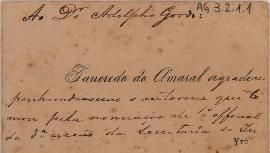 AG 3.2.1.1
Ao Dr Adolpho Gordo:
Tancredo do Amaral agradece
penhoradissimo o interesse que to
mou pela nomeação de 1º official
da 3ª secção da Secretaria do In